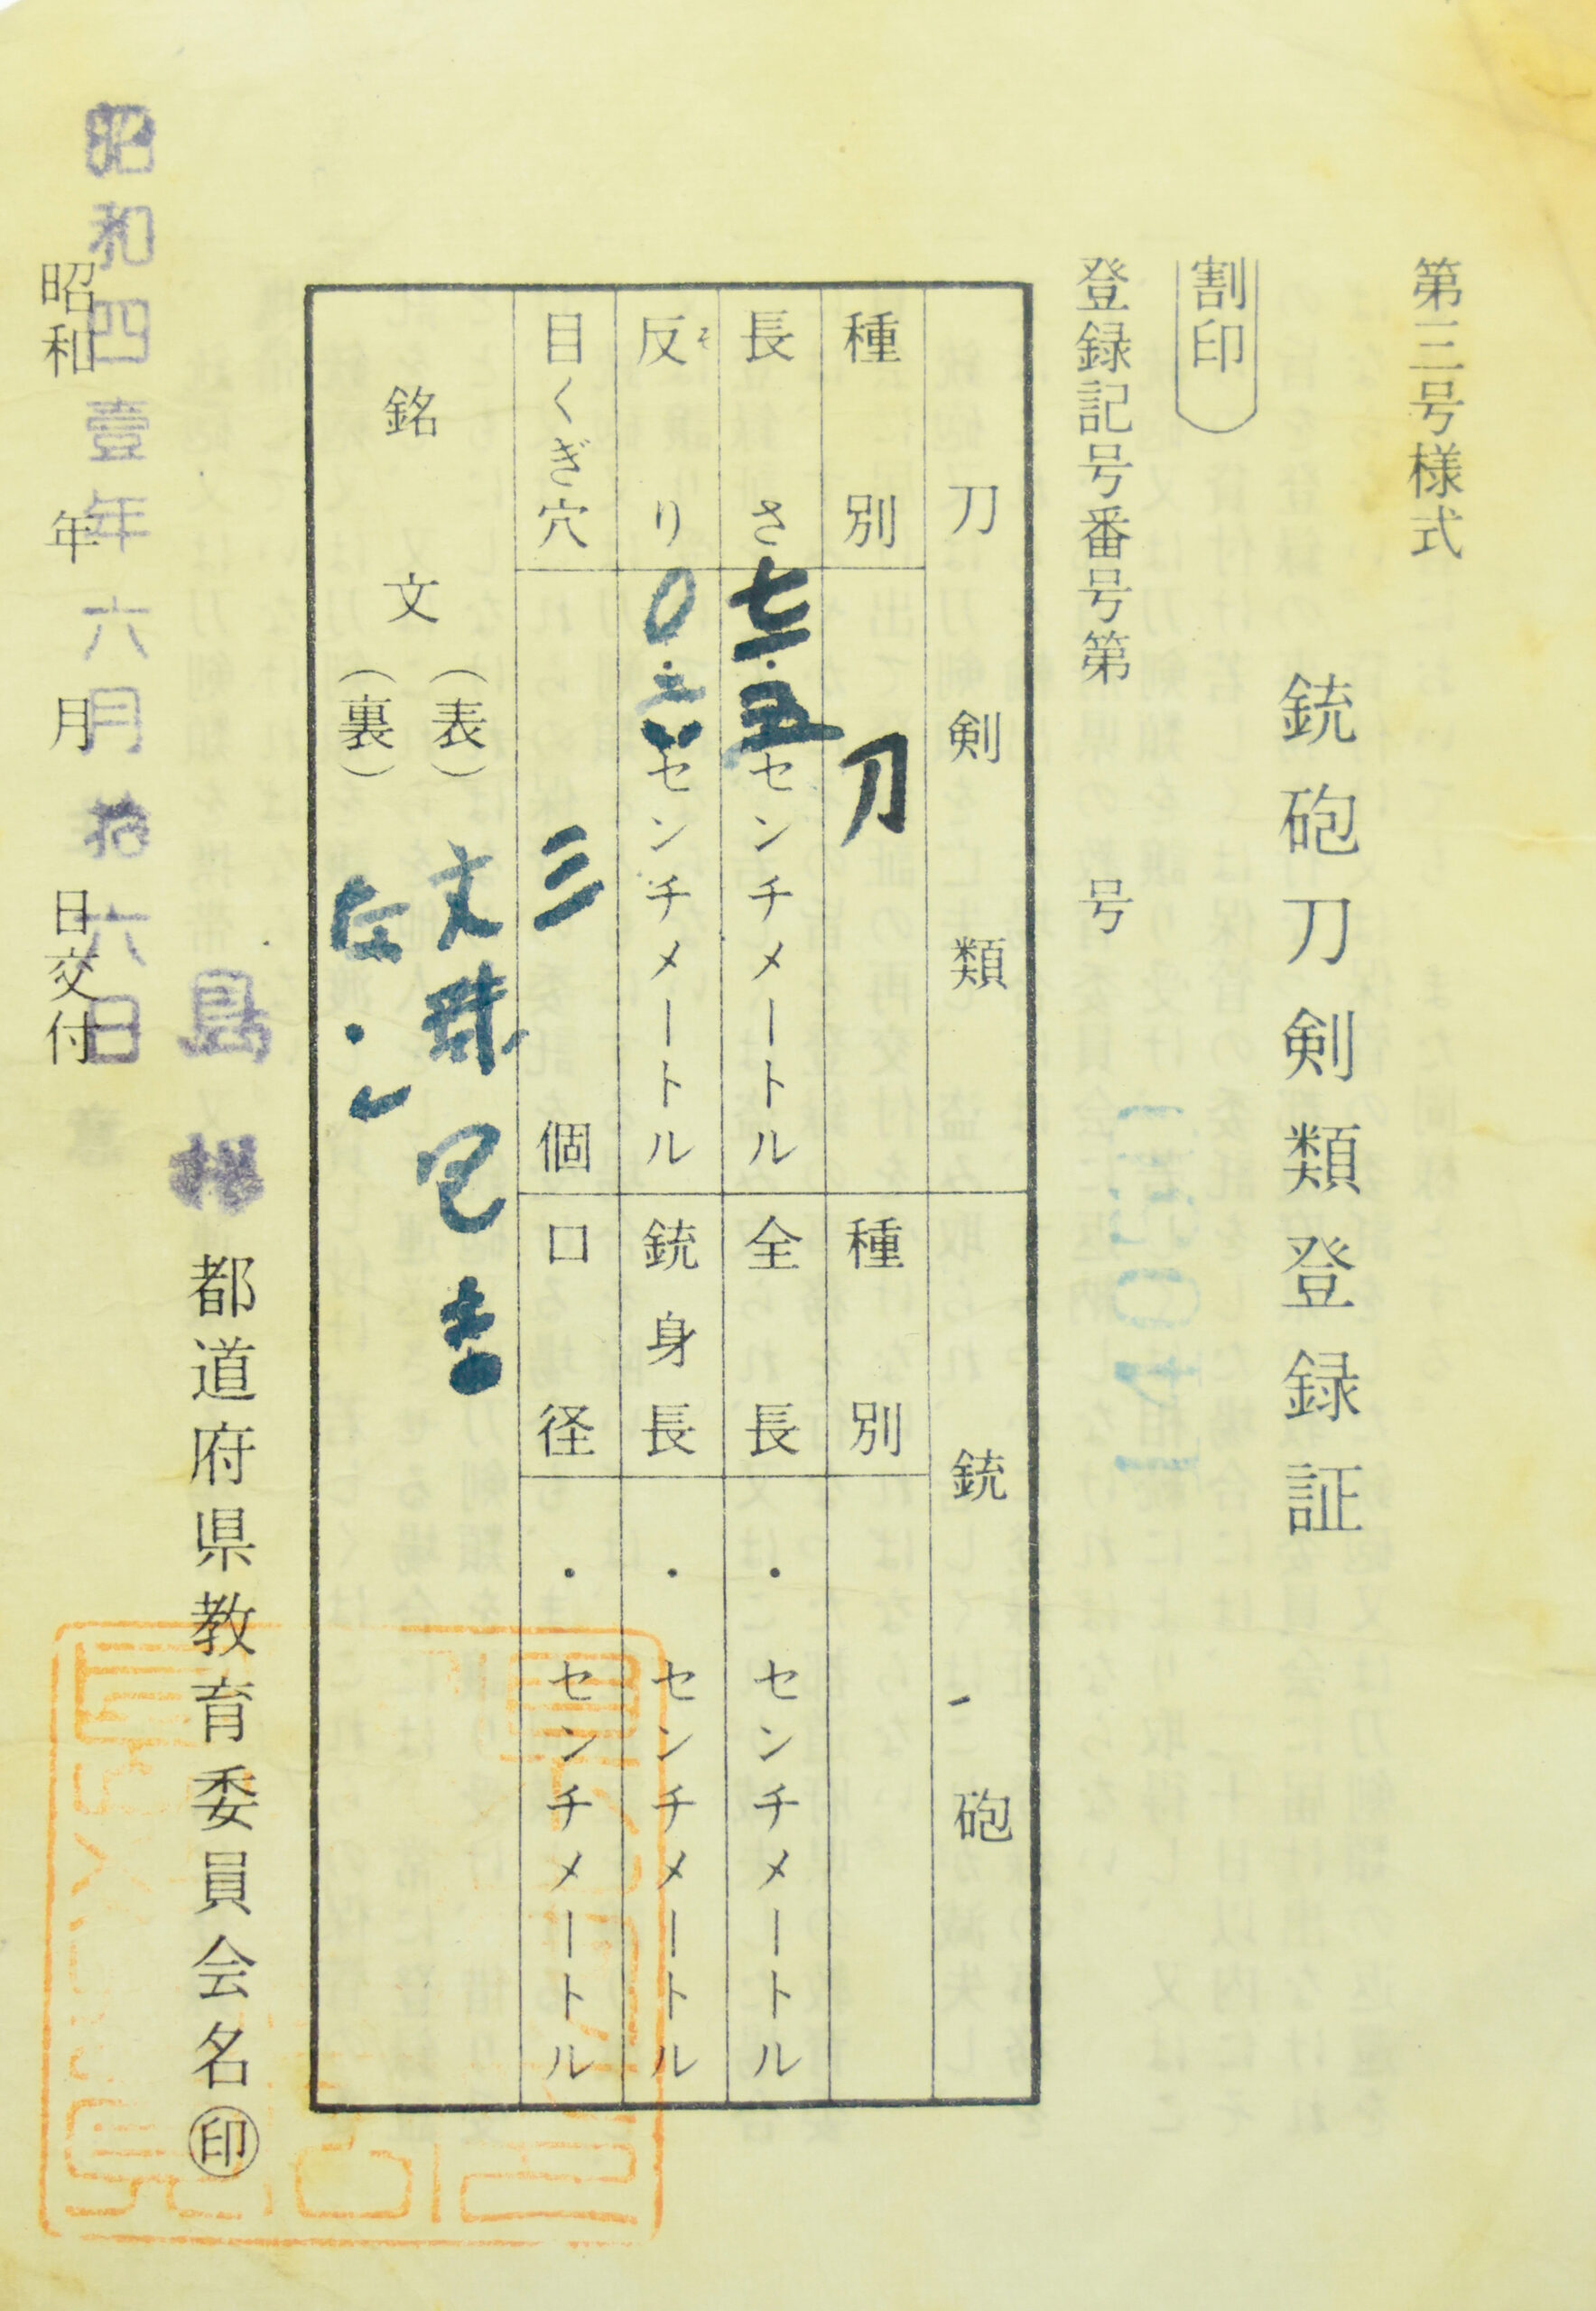 第三号様式
銃砲刀剣類登録証
割印
登録記号番号第 号
刀剣類 銃砲
種別 刀 種別
長さ センチメートル 全長 ・ センチメートル
反り センチメートル 銃身長 ・ センチメートル
目くぎ穴 三個 口径 ・ センチメートル
銘文
(表) 文珠包吉
(裏)
島根
都道府県教育委員会名㊞
昭和四壹年六月拾六日
昭和 年 月 日交付